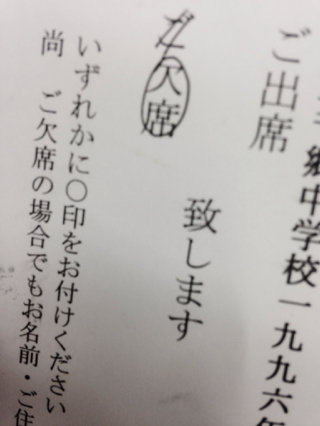 郷中学校一九九六年
ご出席
ご欠席
致します
いずれかに〇印をお付けください
尚 ご欠席の場合でもお名前・ご住